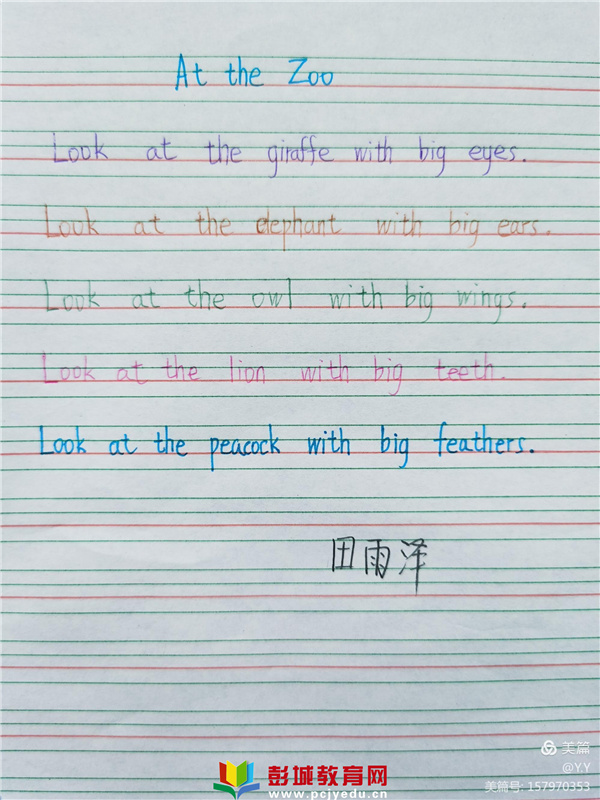 At the Zoo
Look at the giraffe with big eyes.
Look at the elephant with big ears.
Look at the owl with big wings.
Look at the lion with big teeth.
Look at the peacock with big feathers.
田雨泽
美篇
@Y.Y
美篇号:157970353
彭城教育网
www.pcjyedu.cn